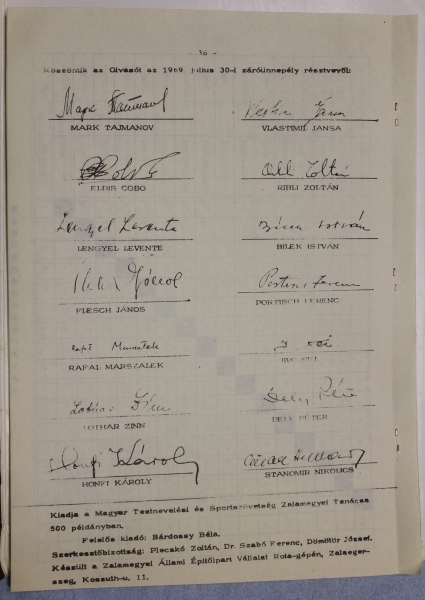 - 36 -
Köszöntik az Olvasót az 1969. július 30-i záróünnepély résztvevői:
MARK TAJMANOV
VLASTIMIL JANSA
ELDIS COBO
RIBLI ZOLTÁN
Lengyel Levente
LENGYEL LEVENTE
Bilek István
BILEK ISTVÁN
FLESCH JÁNOS
Portisch Ferenc
PORTISCH FERENC
Rafał Marszałek
RAFAL MARSZALEK
Lothar Zinn
LOTHAR ZINN
Dely Péter
DELY PÉTER
Honfi Károly
HONFI KÁROLY
STANOMIR NIKOLICS
Kiadja a Magyar Testnevelési és Sportszövetség Zalamegyei Tanácsa
500 példányban.
Felelős kiadó: Bárdossy Béla.
Szerkesztőbizottság: Flecskó Zoltán, Dr. Szabó Ferenc, Dömötör József.
Készült a Zalamegyei Állami Építőipari Vállalat Rota-gépén, Zalaeger-
szeg, Kossuth-u. 11.